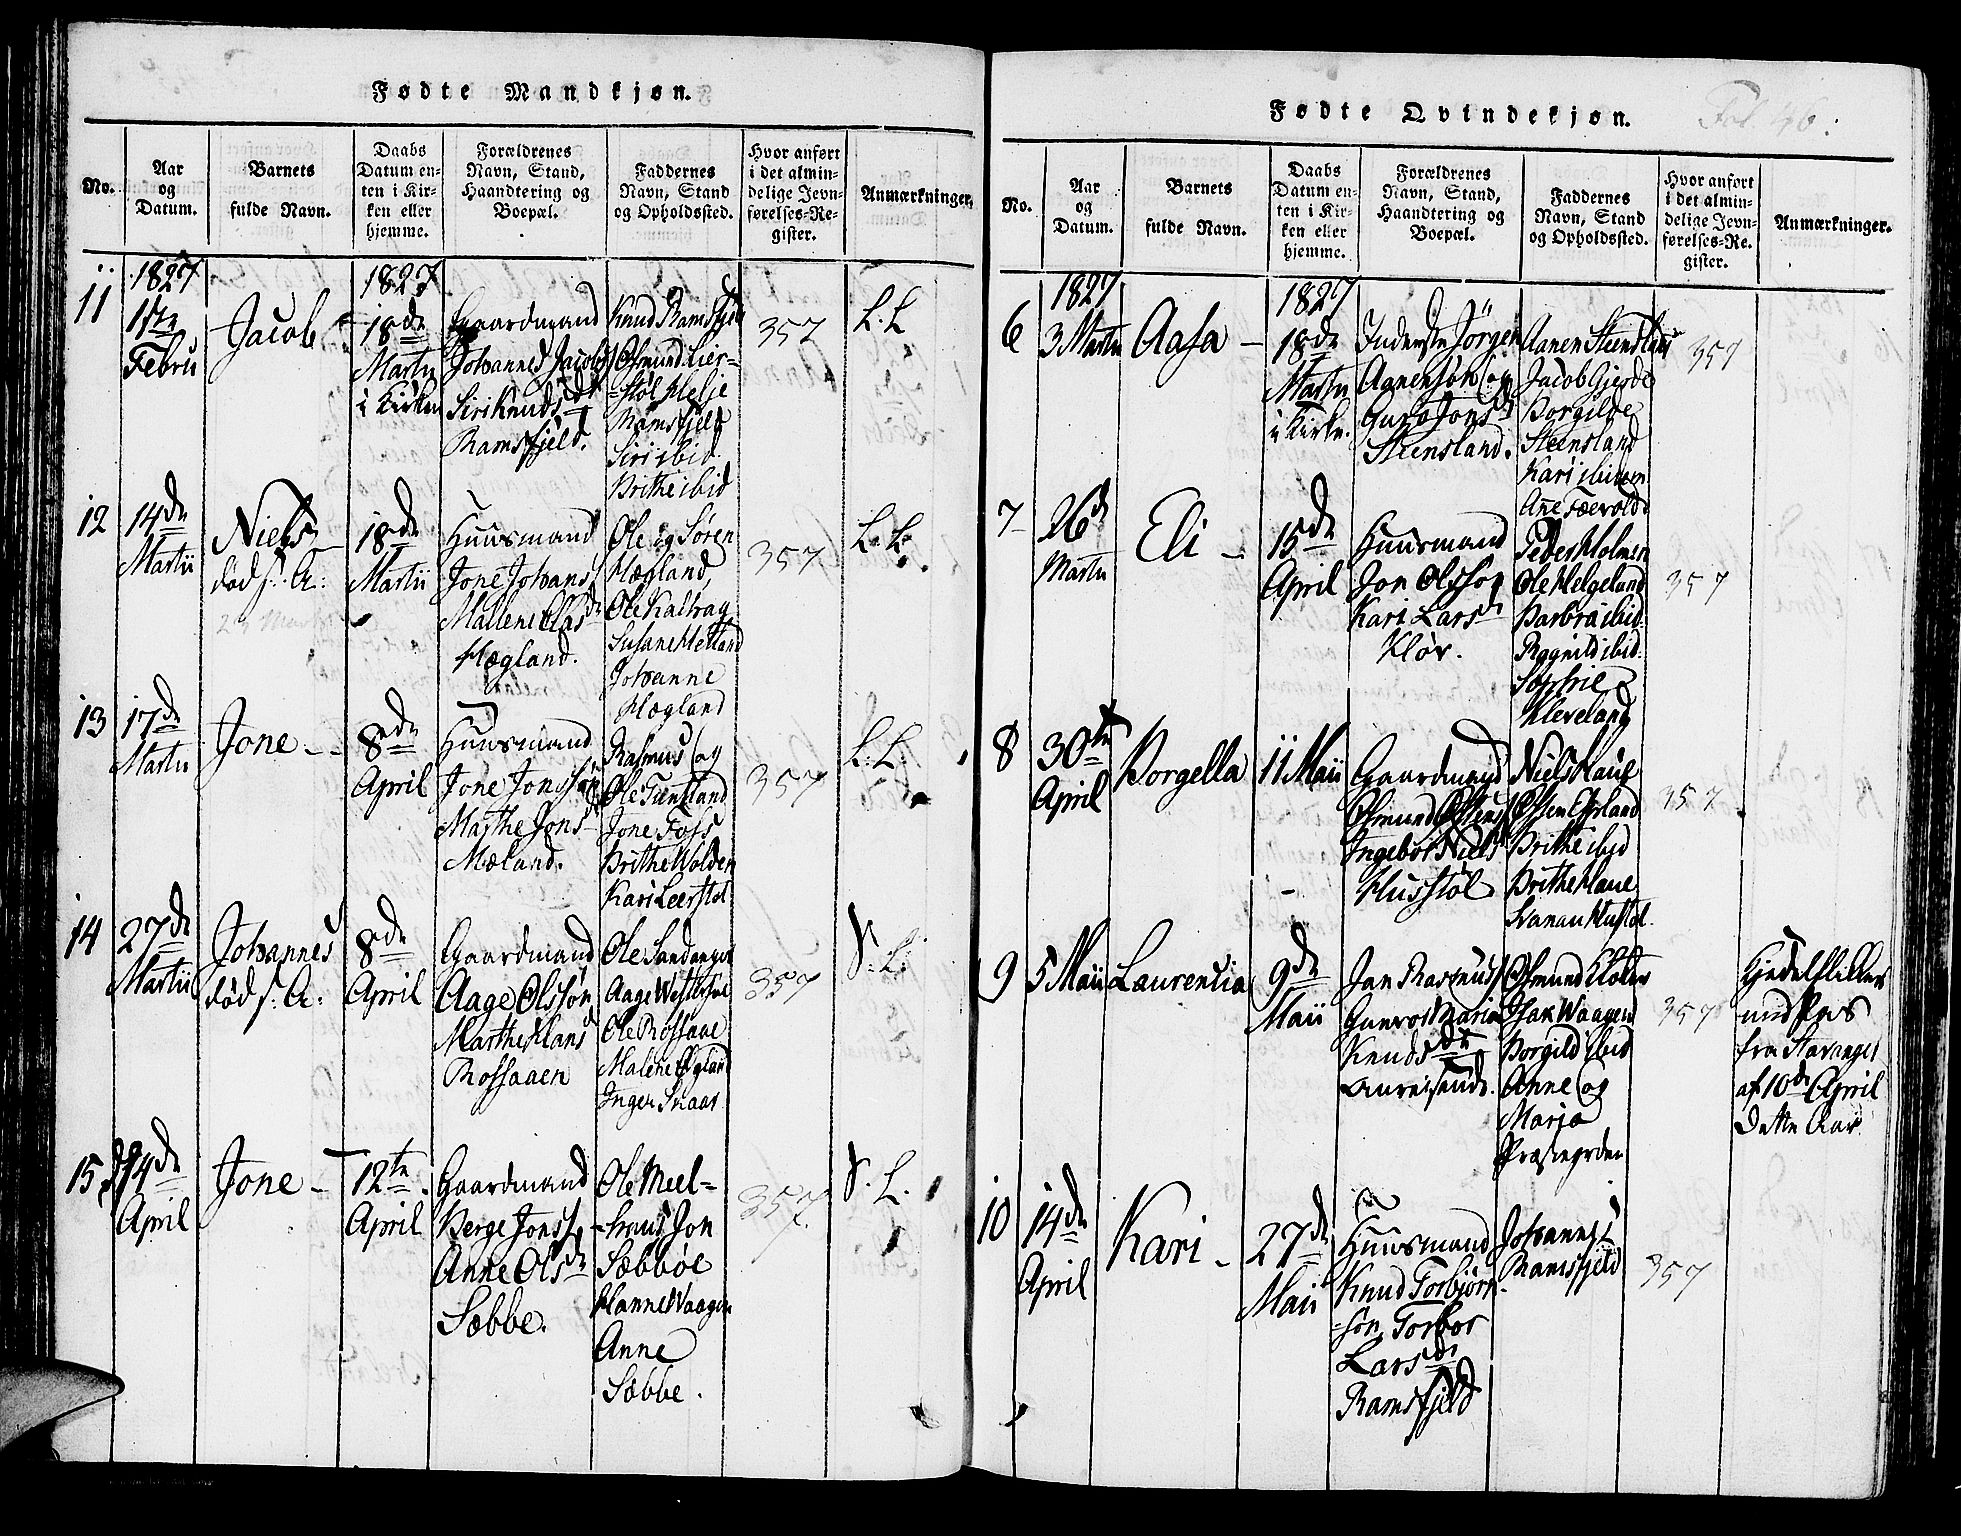 Fødte Mandkjøn.
No.
Aar
og
Datum.
Barnets
fulde Navn.
Daabs
Datum en-
ten i Kir-
ken eller
hjemme.
Forældrenes
Navn, Stand,
Haandtering og
Boepæl.
Faddernes
Navn, Stand
og Opholdssted.
Hvor anført
i det almin-
delige Jevn-
førelses-Re-
gister.
Anmærkninger.
11
1827
Febru
Jacob
1827
18de
Martii
i Kirken
Gaardmand
Johannes Jacobs
Siri Knudsdr
Ramsfjeld.
Knud Ramsfjeld
Osmund Lier-
støl Helje
Ramsfjeld
Siri ibid.
Brithe ibid
357
L. L
12
14de
Martii
Niels
død s. A:
23 Marti
18de
Martii
Huusmand
Jone Johans
Mallene Olasdr
Hægland.
Ole og Søren
Hægland,
Ole Kaltrag
Susane Hetland
Johanne
Hægland
357
L. L.
13
17de
Martii
Jone -
8de
April
Huusmand
Jone Jonssøn
Marthe Jons
Mæland.
Rasmus og
Ole Tiensland
Jone Foss
Brithe Wolden
Kari Leerstøl
357
L. L.
14
27de
Martii
Johannes
død s. A.
8de
April
Gaardmand
Aage Olssøn
Marthe Hans
Rossaaen
Ole Sandanger
Aage
Ole Rossaae
Malene
Inger Snaas
357
S. L.
15
14de
April
Jone -
12te
April
Gaardmand
Berge Jonss
Anne Olsdr
Sæbbe.
Ole Meel-
-hauj Jon
Sæbbøe
Hanne Waagen
Anne
Sæbbe.
357
S. L.
Fødte Qvindekjøn.
Fol. 46.
No.
Aar
og
Datum.
Barnets
fulde Navn.
Daabs
Datum en-
ten i Kir-
ken eller
hjemme.
Forældrenes
Navn, Stand,
Haandtering og
Boepæl.
Faddernes
Navn, Stand
og Opholdssted.
Hvor anført
i det almin-
delige Jevn-
førelses-Re-
gister.
Anmærkninger.
6
1827
3 Martii
Aasa -
1827
18de
Martii
i Kirke.
Inderste Jörgen
Aanensøn og
Guro Jonsd
Steensland.
Aanen Steensland
Jacob Gjerde
Borgilde
Steensland
Kari ibidem
Ane Fævold
357
7
26d
Martii
Eli -
15de
April
Huusmand
Jon Olsson
Kari Larsd
Kløv.
Peder Holmen
Ole Helgeland
Barbra ibid.
Ragnild ibid.
Sophie
Kleveland
357
8
30te
April
Borgella
11 Maii
Gaardmand
Osmund
Ingebor Niels
Husstøl
Niels Haue
Osten Espland
Brithe ibid
Brithe Haue
Svanau Hustøl.
357
9
5 Maii
Laurentia
9de
Maii
Jan Rasmus
Maria
Knudsdr
Omreisende.
Osmund
Isak Waagen
Borgild ibid
Anne og
Maria
Præstegrden
357
Kjedelflikker
med Pas
fra Stavanger
af 10de April
dette Aar
10
14de
April
Kari -
27de
Maii
Huusmand
Knud Torbjörn-
søn Torbor
Larsdr
Ramsfjeld
Johannes
Ramsfjeld
357